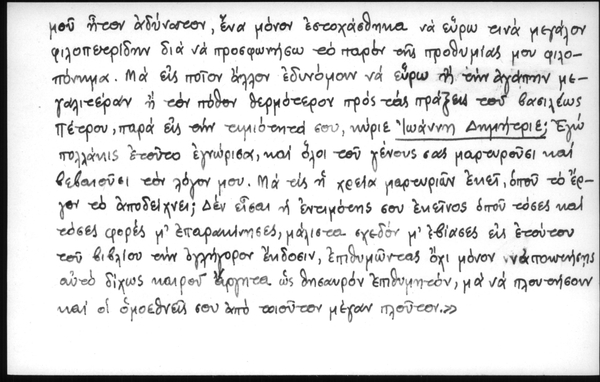 μοῦ ἦτον ἀδύνατον, ἕνα μόνον ἐστοχάσθηκα νὰ εὕρω τινὰ μεγάλον
φιλοπετρίδην διὰ νὰ προσφωνήσω τὸ παρὸν τῆς προθυμίας μου φιλο-
πόνημα. Μὰ εἰς ποῖον ἄλλον ἐδυνόμουν νὰ εὕρω ἢ τὴν ἀγάπην με-
γαλιτέραν ἢ τὸν πόθον θερμότερον πρὸς τὰς πράξεις τοῦ βασιλέως
Πέτρου, παρὰ εἰς τὴν τιμιότητά σου, κύριε Ἰωάννη Δημήτριε; Ἐγὼ
πολλάκις ἐτοῦτο ἐγνώρισα, καὶ ὅλοι τοῦ γένους σας μαρτυροῦσι καὶ
βεβαιοῦσι τὸν λόγον μου. Μὰ τίς ἡ χρεία μαρτυριῶν ἐκεῖ, ὁποῦ τὸ ἔρ-
γον τὸ ἀποδείχνει; Δὲν εἶσαι ἡ ἐντιμότης σου ἐκεῖνος ὁποῦ τόσες καὶ
τόσες φορὲς μ' ἐπαρακίνησες, μάλιστα σχεδὸν μ' ἐβίασες εἰς ἐτούτου
τοῦ βιβλίου τὴν ὀγλήγορον ἔκδοσιν, ἐπιθυμῶντας ὄχι μόνον νὰ ποκτήσῃς
αὐτὸ δίχως καιροῦ ἄργητα ὡς θησαυρὸν ἐπιθυμητόν, μὰ νὰ πλουτήσουν
καὶ οἱ ὁμοεθνεῖς σου ἀπὸ τοιοῦτον μέγαν πλοῦτον.»